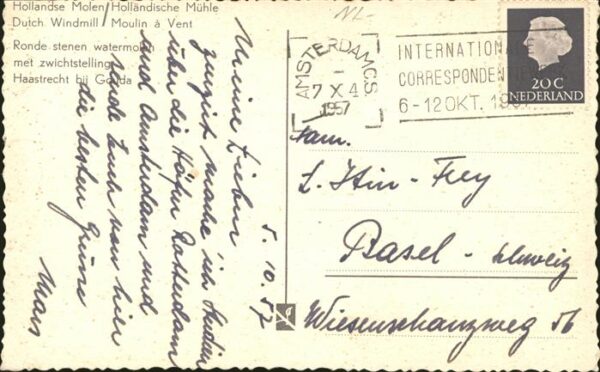 Hollandse Molen/Holländische Mühle
Dutch Windmill/Moulin à Vent
Ronde stenen watermolen
met zwichtstelling
Haastrecht bij Gouda
NL-
AMSTERDAM CS
7 X 4
1957
INTERNATIONALE
CORRESPONDENTIE
6-12 OKT. 19
20 C
NEDERLAND
5. 10. 57
Meine Lieben
zurzeit mache ich Studien
über die Häfen Rotterdam
und Amsterdam und
sende Euch von hier
die besten Grüsse
Fam.
Frey
Basel - Schweiz
Wiesenschanzweg 56